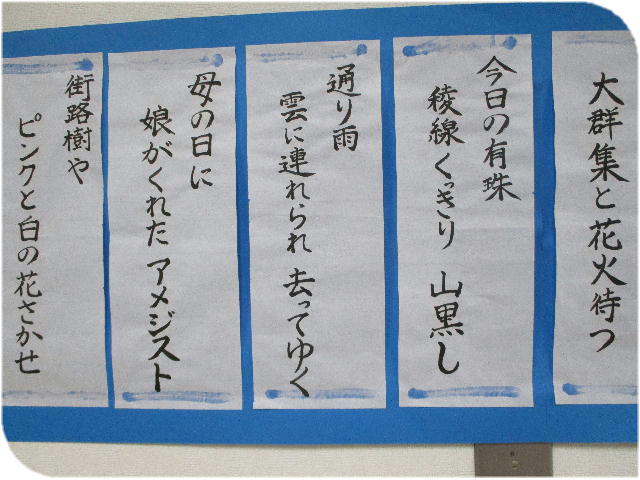 大群集と花火待つ
今日の有珠
稜線くっきり 山黒し
通り雨
雲に連れられ 去ってゆく
母の日に
娘がくれた アメジスト
街路樹や
ピンクと白の花さかせ